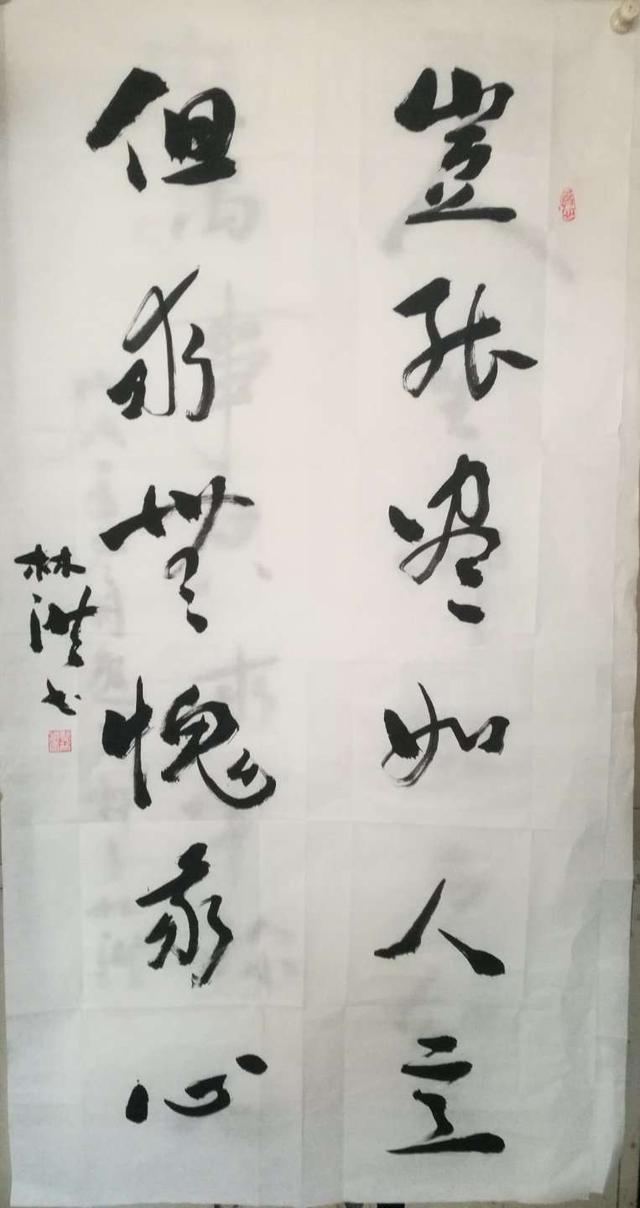 豈能盡如人意
但求無愧我心
林洪书